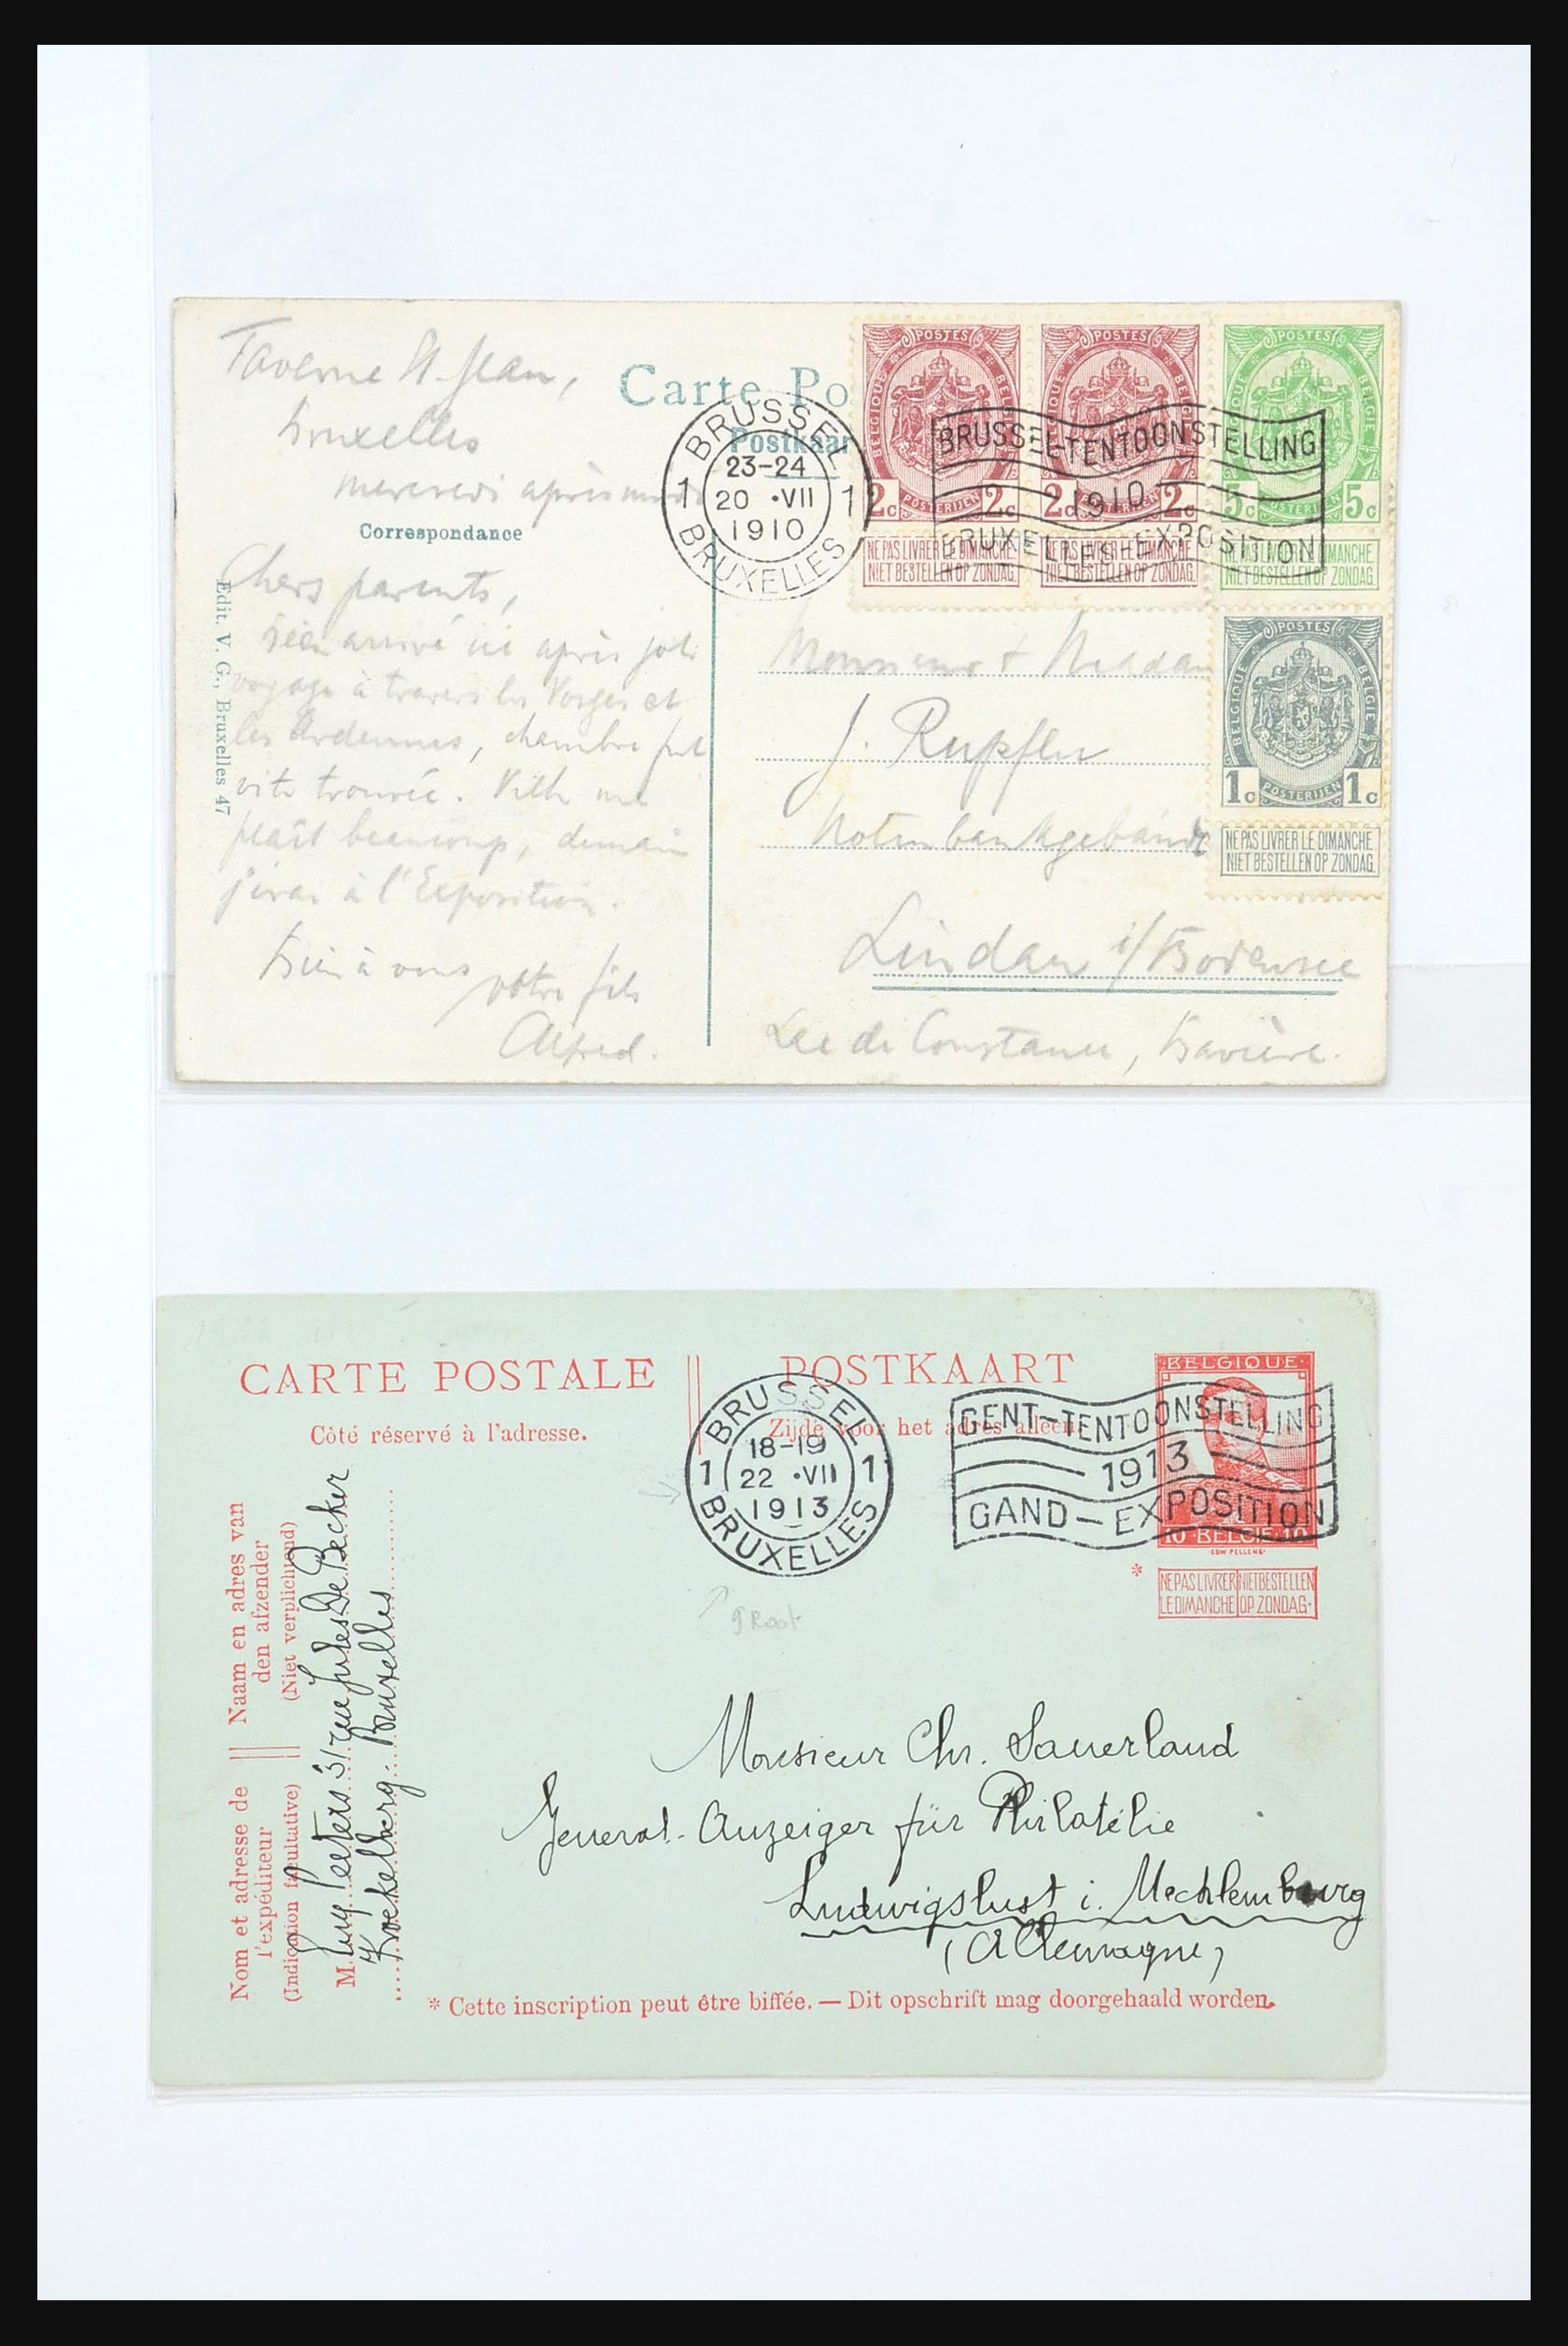 Taverne St. Jean,
Bruxelles
mercredi après midi
Carte Po
Postkaar
Correspondance
Edit. V. G., Bruxelles 47
Chers parents,
bien arrivé ici après joli
voyage à travers les Vosges et
les Ardennes, chambre fut
vite trouvée. Ville me
plaît beaucoup, demain
j'irai à l'Exposition.
Bien à vous
votre fils
Alfred.
BRUSSEL
23-24
1 20 •VII 1
1910
BRUXELLES
BRUSSEL-TENTOONSTELLING
1910
BRUXELLES-EXPOSITION
POSTES
BELGIQUE BELGIE
2c 2c
POSTERIJEN
NE PAS LIVRER LE DIMANCHE.
NIET BESTELLEN OP ZONDAG.
POSTES
BELGIQUE BELGIE
2c 2c
NE PAS LIVRER LE DIMANCHE.
NIET BESTELLEN OP ZONDAG.
POSTES
BELGIQUE BELGIE
5c 5c
POSTERIJEN
NE PAS LIVRER LE DIMANCHE.
NIET BESTELLEN OP ZONDAG.
POSTES
BELGIQUE BELGIE
1c 1c
POSTERIJEN
NE PAS LIVRER LE DIMANCHE.
NIET BESTELLEN OP ZONDAG.
Monsieur + Madam
J. Rupflin
Notenbankgebäude
Lindau i/Bodensee
Lac de Constance, Bavière.
CARTE POSTALE
Côté réservé à l'adresse.
POSTKAART
Zijde voor het adres alleen.
BRUSSEL
18-19
1 22 •VII 1
1913
BRUXELLES
GENT-TENTOONSTELLING
1913
GAND-EXPOSITION
BELGIQUE
10 BELGIË 10
EDW PELLENS
*
NE PAS LIVRER LE DIMANCHE
NIET BESTELLEN OP ZONDAG.
Naam en adres van
den afzender
(Niet verplichtend)
Nom et adresse de
l'expéditeur
(Indication facultative)
M. Eug. Peeters 31 rue Jules De Becker
Koekelberg. Bruxelles
Monsieur Chr. Sauerland
General-Anzeiger für Philatelie
Ludwigslust i. Mechlemburg
(Allemagne)
* Cette inscription peut être biffée. — Dit opschrift mag doorgehaald worden.